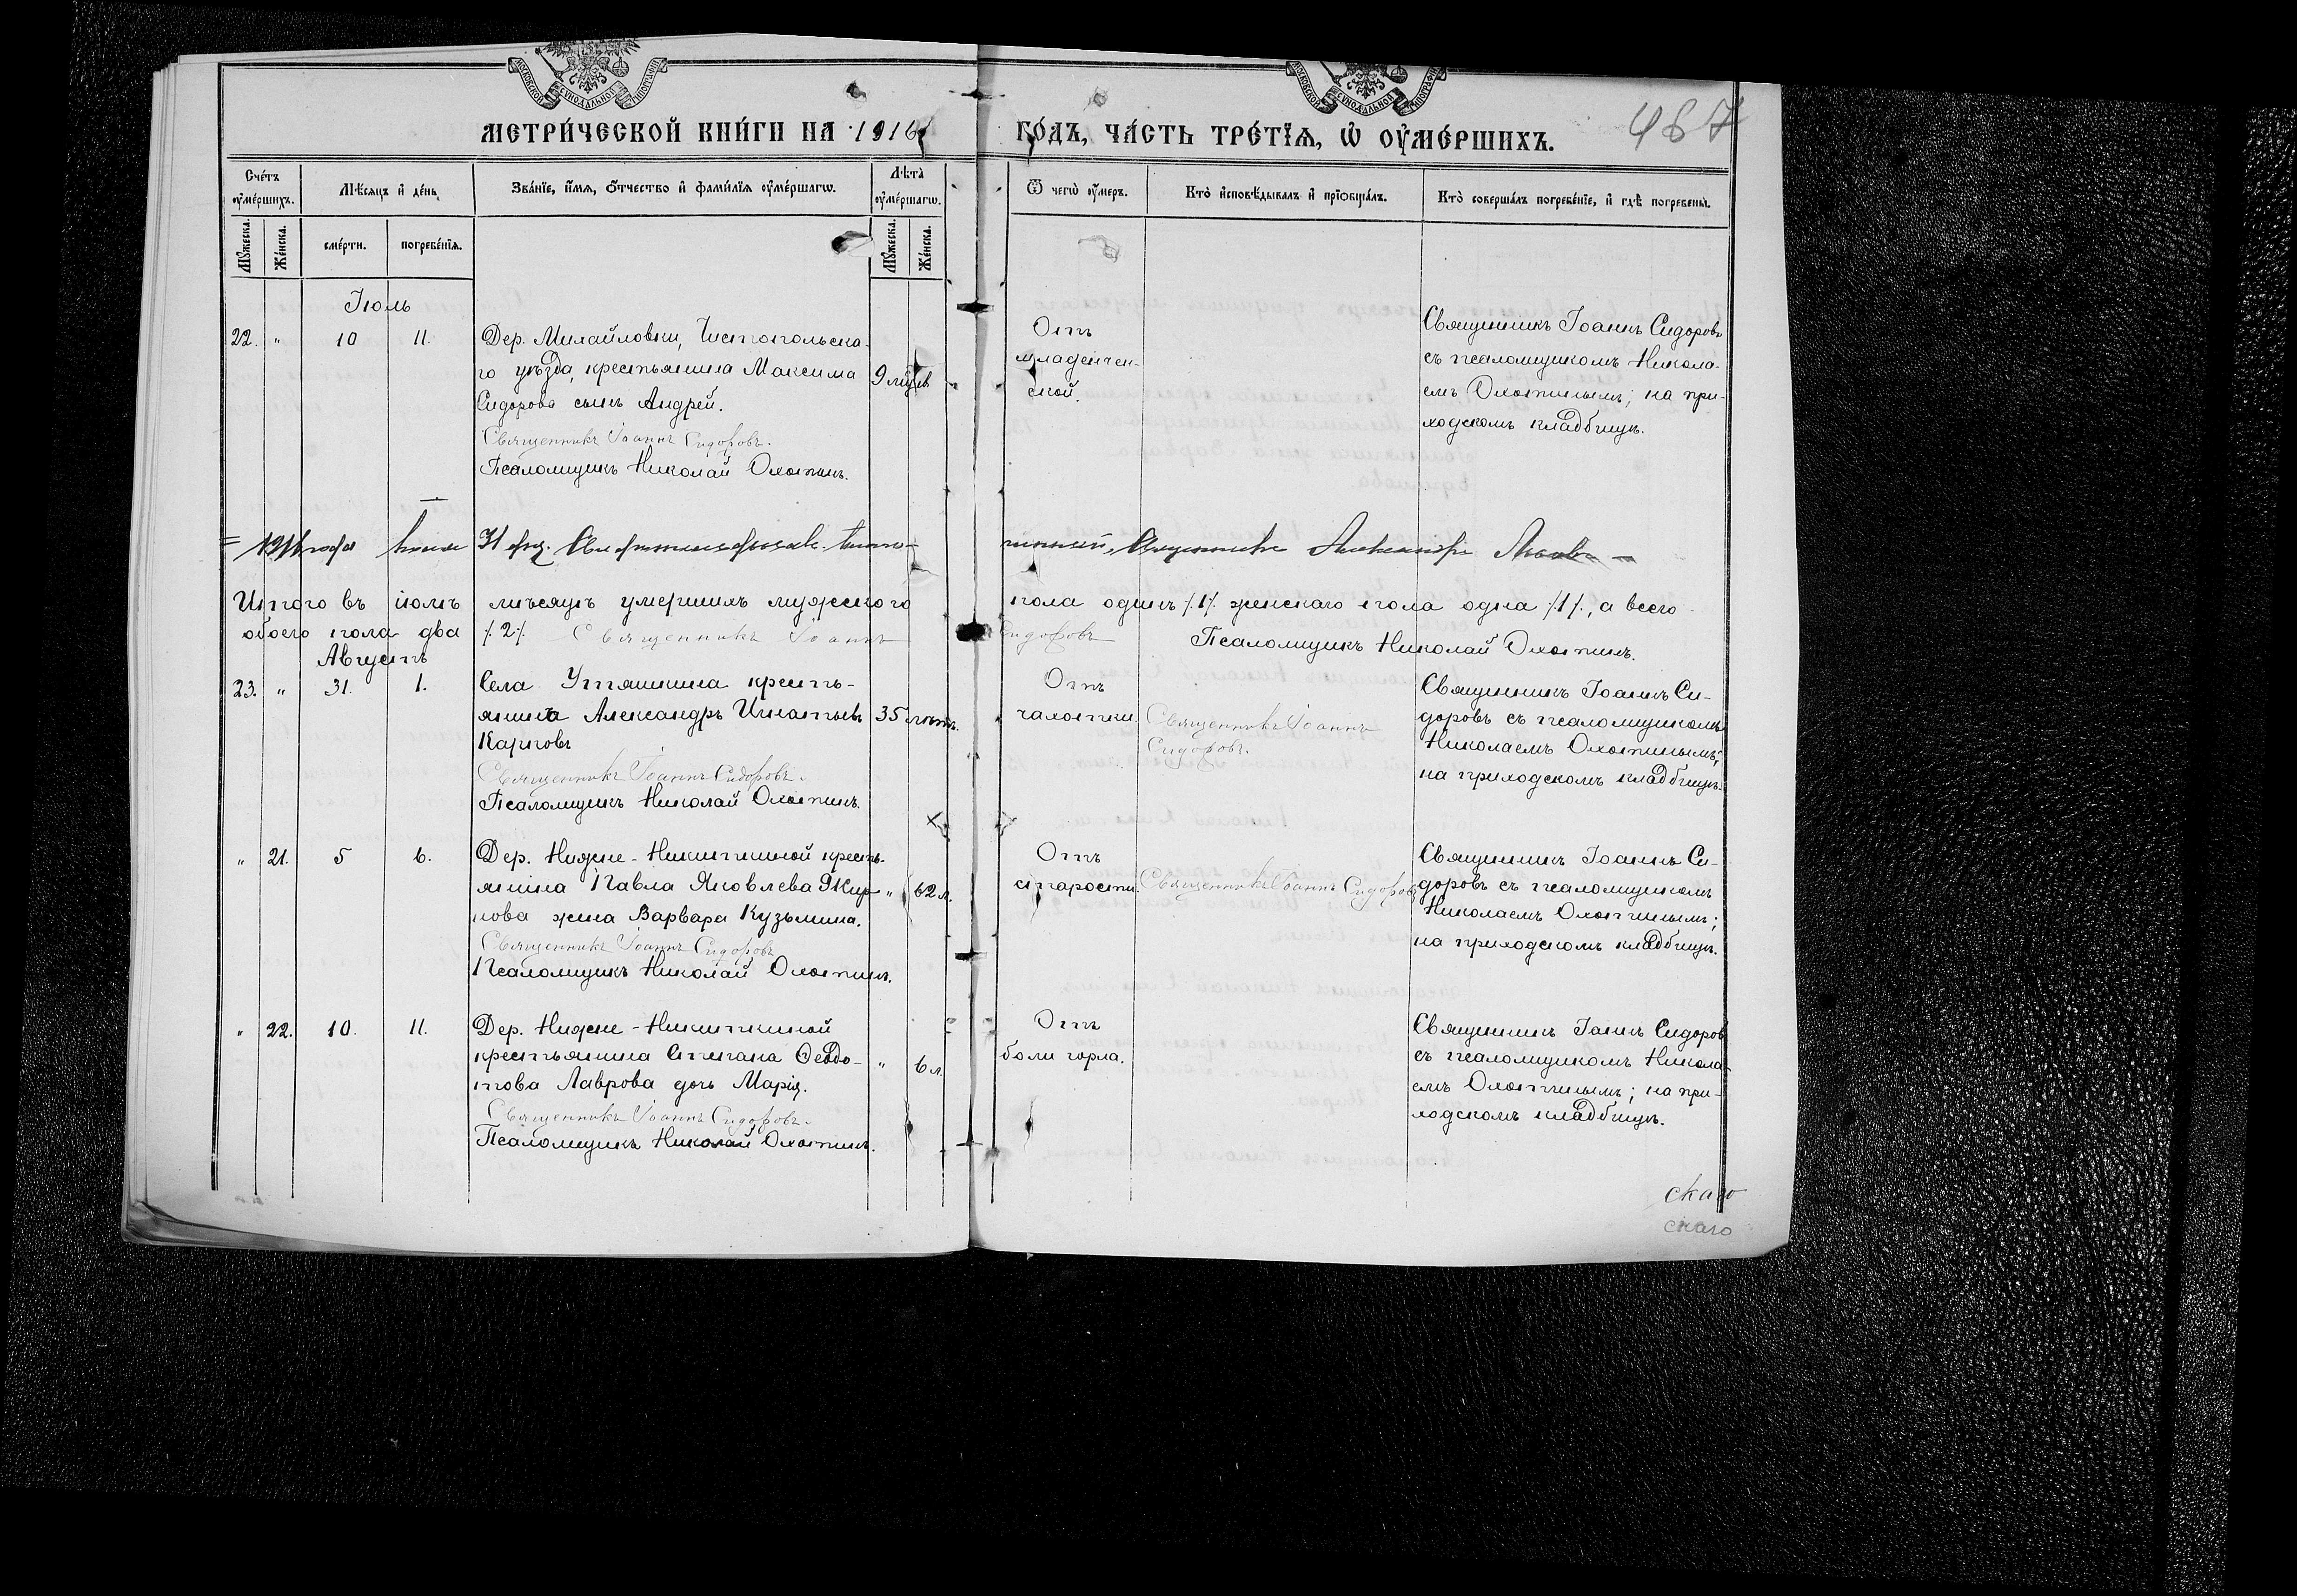 МОСКОВСКОЙ СѴНОДАЛЬНОЙ ТИПОГРАФІИ
МОСКОВСКОЙ СѴНОДАЛЬНОЙ ТИПОГРАФІИ
МЕТРИ́ЧЕСКОЙ КНИ́ГИ НА 1916
ГО́ДЪ, ЧА́СТЬ ТРЕ́ТІѦ, Ѡ҆ ОУ҆МЕ́РШИХЪ.
487
Сче́тъ оу҆ме́ршихъ.
Мѣ́сяцъ и҆ де́нь
Зва́нїе, и҆́мѧ, ѻ҆́тчество и҆ фами́лїѧ оу҆ме́ршагѡ.
Лѣта̀ оу҆ме́ршагѡ.
Ѿ чегѡ̀ оу҆́меръ.
Кто̀ и҆сповѣ́дывалъ и҆ прїѡбща́лъ.
Кто̀ соверша́лъ погребе́нїе, и҆ гдѣ̀ погребены̀.
Мꙋ́жеска.
Же́нска.
сме́рти.
погребе́нїѧ.
Мꙋ́жеска.
Же́нска.
Іюль
22. " 10 11.
Дер. Михайловки, Чистопольска-
го уѣзда, крестьянина Максима
Сидорова сынъ Андрей.
9 мѣс.
Священникъ Іоаннъ Сидоровъ.
Псаломщикъ Николай Охотинъ.
Отъ
младенчен-
ской.
Священникъ Іоаннъ Сидоровъ
съ псаломщикомъ Никола-
емъ Охотинымъ; на при-
ходскомъ кладбищѣ.
1916 года 31 дня. Священникъ Александръ
Итого въ іюлѣ мѣсяцѣ умершихъ мужескаго пола одинъ /.1/. женскаго пола одна /.1/., а всего
обоего пола два /.2/. Священникъ Іоаннъ Сидоровъ Псаломщикъ Николай Охотинъ.
Августъ
23. " 31. 1.
Села Утяшкина кресть-
янинъ Александръ Игнатьевъ
Карповъ
35 лѣтъ.
Священникъ Іоаннъ Сидоровъ.
Псаломщикъ Николай Охотинъ.
Отъ
чахотки.
Священникъ Іоаннъ
Сидоровъ.
Священникъ Іоаннъ Си-
доровъ съ псаломщикомъ
Николаемъ Охотинымъ;
на приходскомъ кладбищѣ.
" 21. 5 6.
Дер. Нижне-Никиткиной кресть-
янина Павла Яковлева Жир-
нова жена Варвара Кузьмина.
" 62 л.
Священникъ Іоаннъ Сидоровъ
Псаломщикъ Николай Охотинъ.
Отъ
старости.
Священникъ Іоаннъ Сидоровъ
Священникъ Іоаннъ Си-
доровъ съ псаломщикомъ
Николаемъ Охотинымъ;
на приходскомъ кладбищѣ.
" 22. 10. 11.
Дер. Нижне-Никиткиной
крестьянина Степана Ѳеодо-
това Лаврова дочь Марія.
" 6 л.
Священникъ Іоаннъ Сидоровъ.
Псаломщикъ Николай Охотинъ.
Отъ
боли горла.
Священникъ Іоаннъ Сидоровъ
съ псаломщикомъ Никола-
емъ Охотинымъ; на при-
ходскомъ кладбищѣ.
скаго
скаго